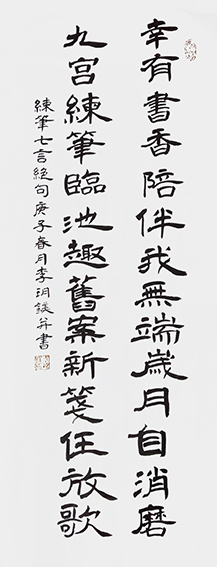 幸有書香陪伴我無端歲月自消磨
九宫練筆臨池趣舊案新箋任放歌
練筆七言絕句庚子春月李泂鎂并書